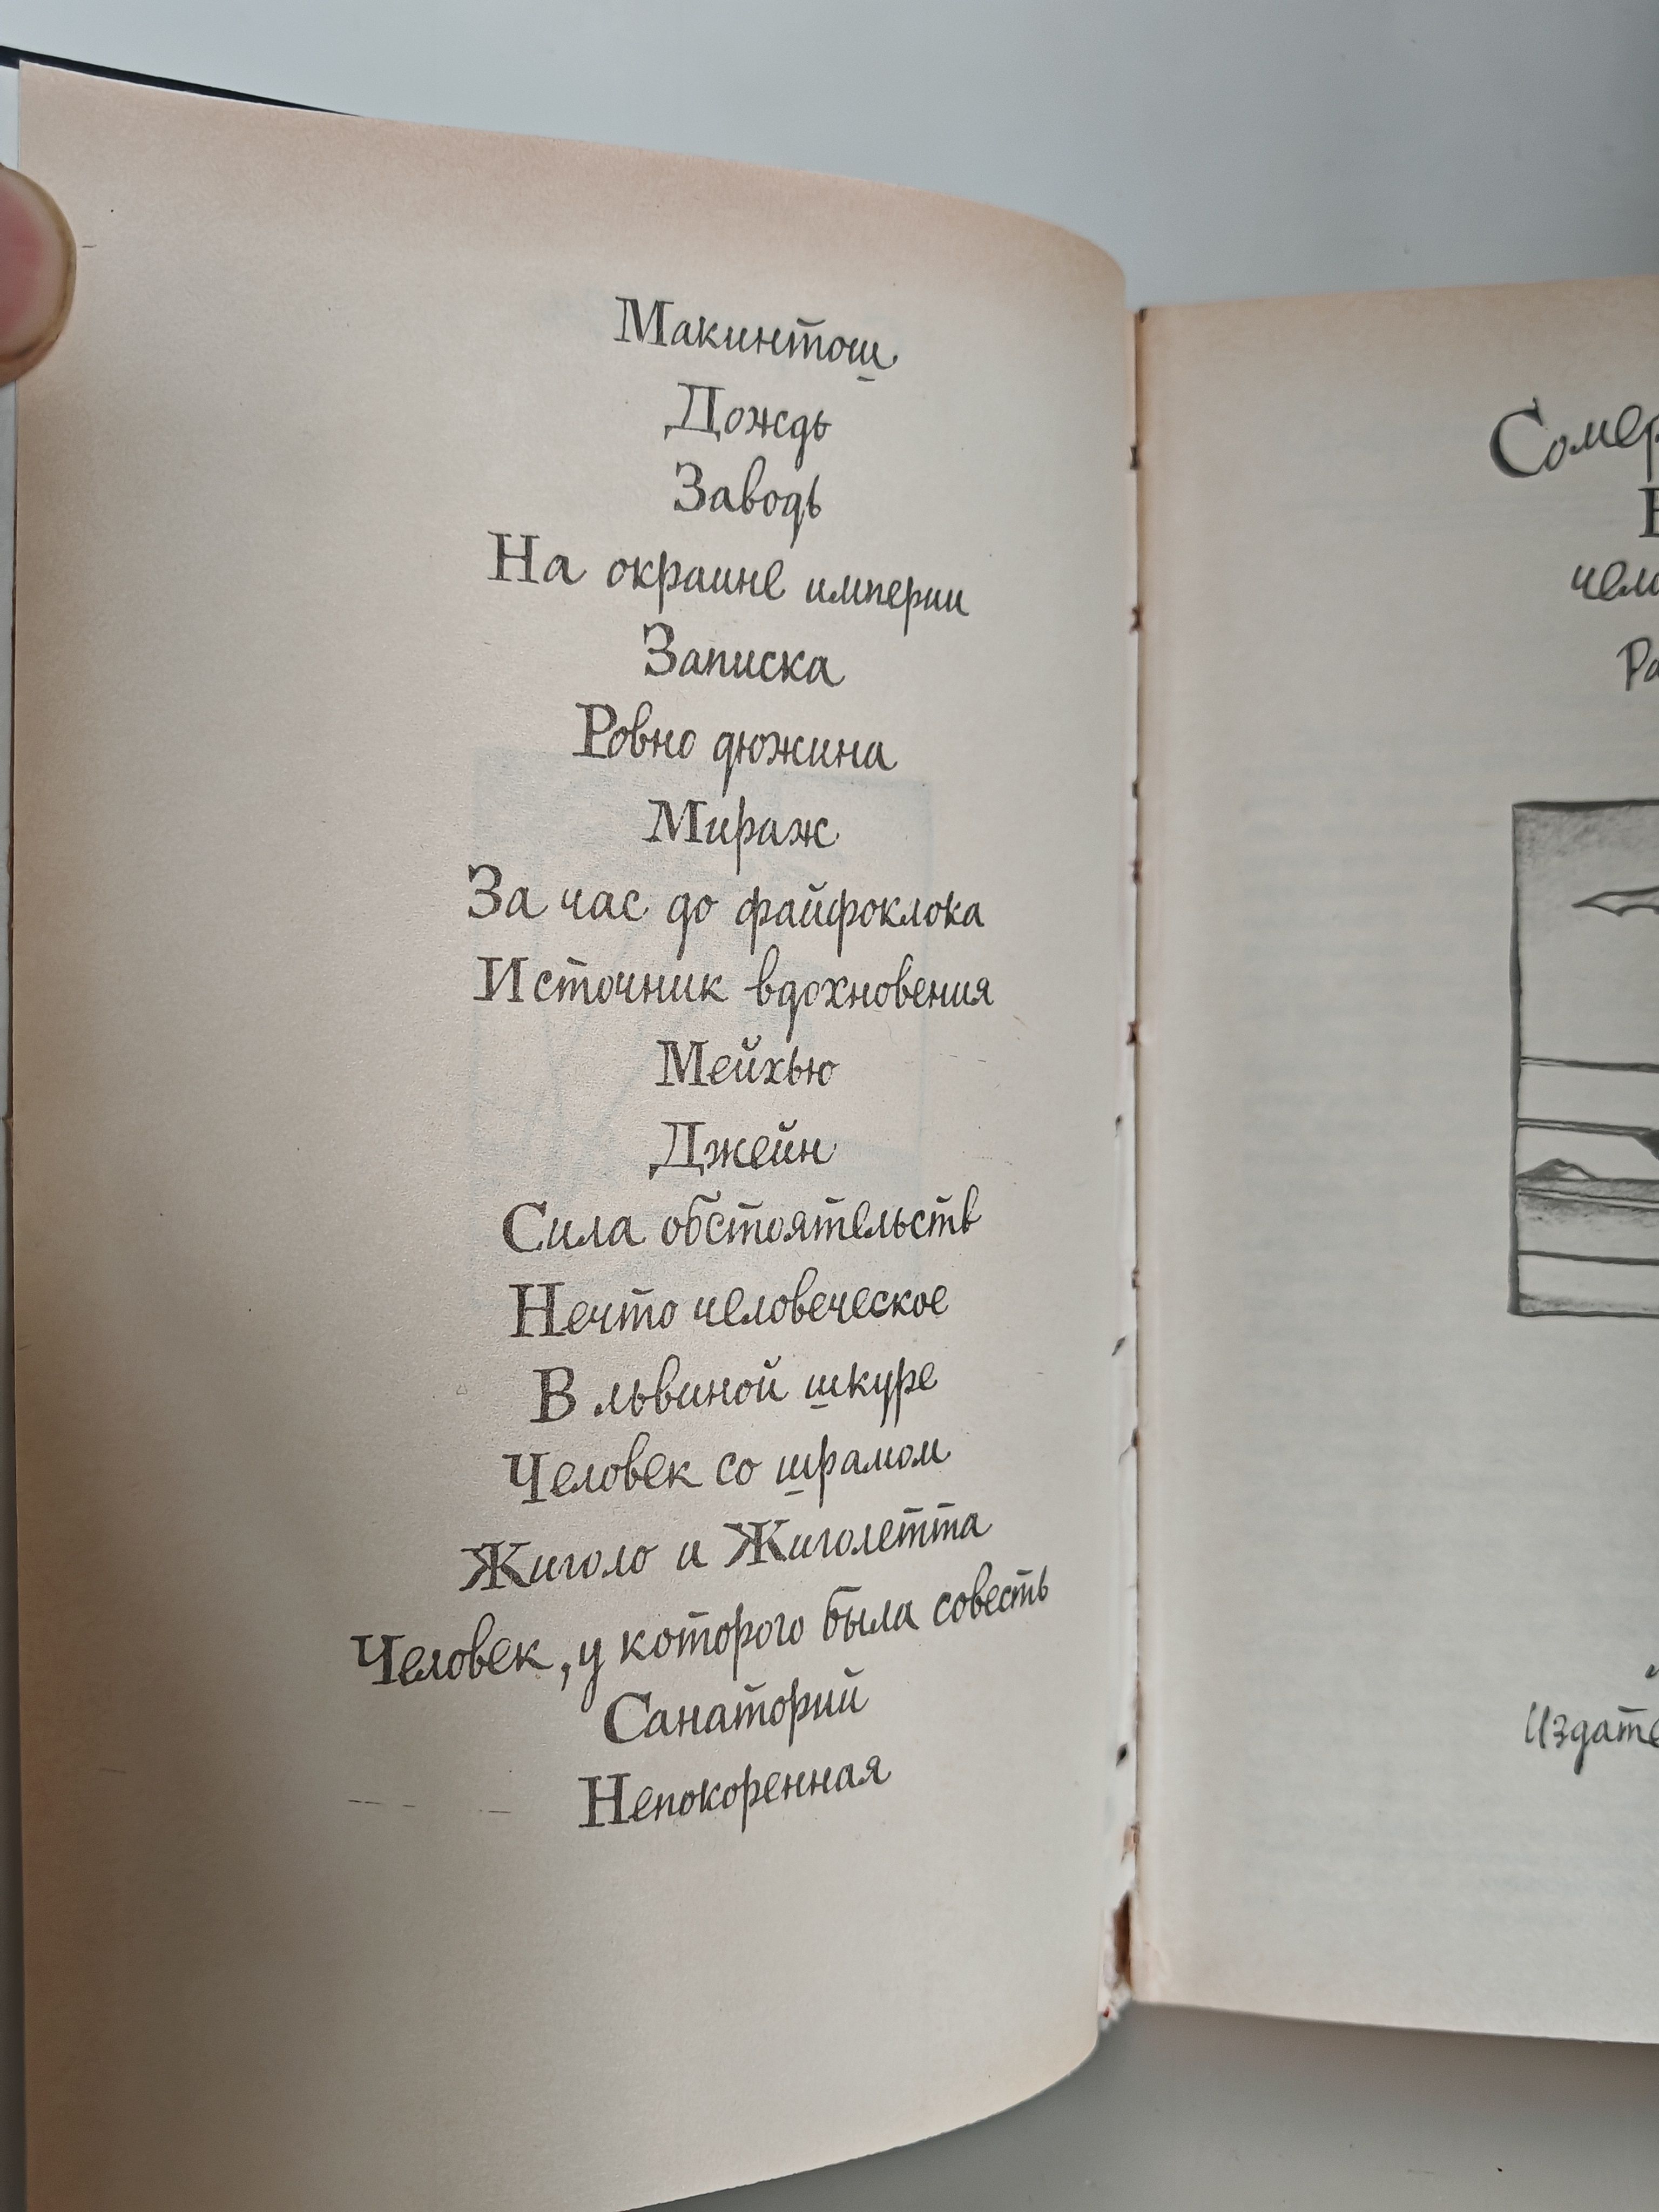 Макинтош
Дождь
Заводь
На окраине империи
Записка
Ровно дюжина
Мираж
За час до файфоклока
Источник вдохновения
Мейхью
Джейн
Сила обстоятельств
Нечто человеческое
В львиной шкуре
Человек со шрамом
Жиголо и Жиголетта
Человек, у которого была совесть
Санаторий
Непокоренная